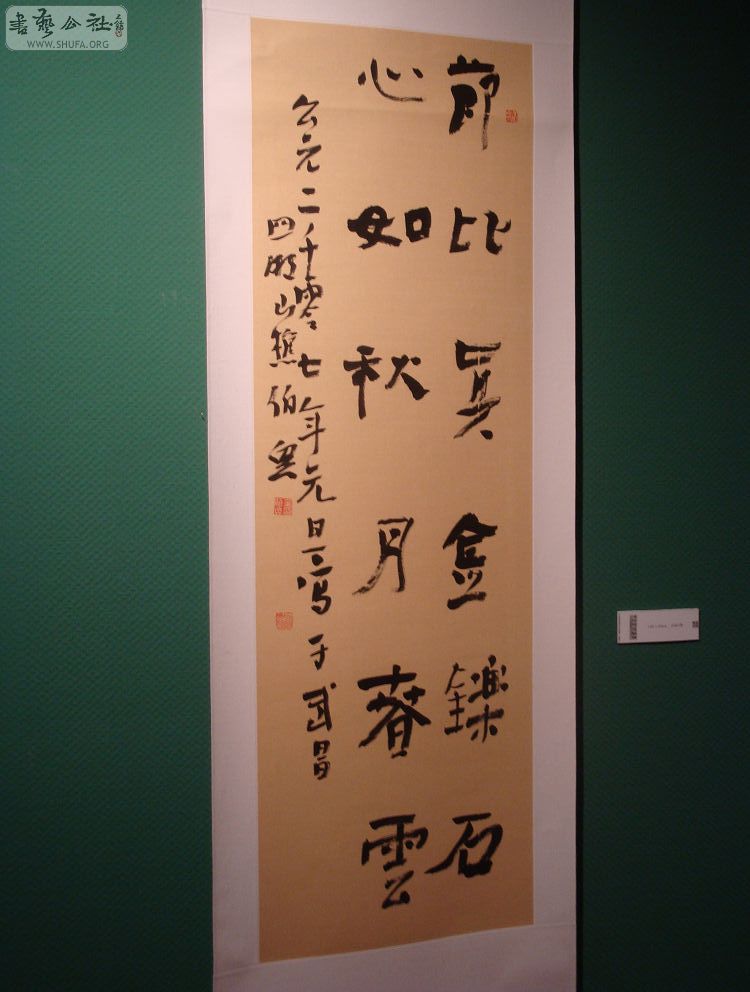 節比真金鑠石
心如秋月春雲
公元二〇千零七年元旦写于武昌
四明山樵伯無
書藝公社
WWW.SHUFA.ORG